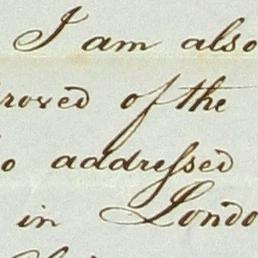 I am also
roved of the
o addressed
in Londo